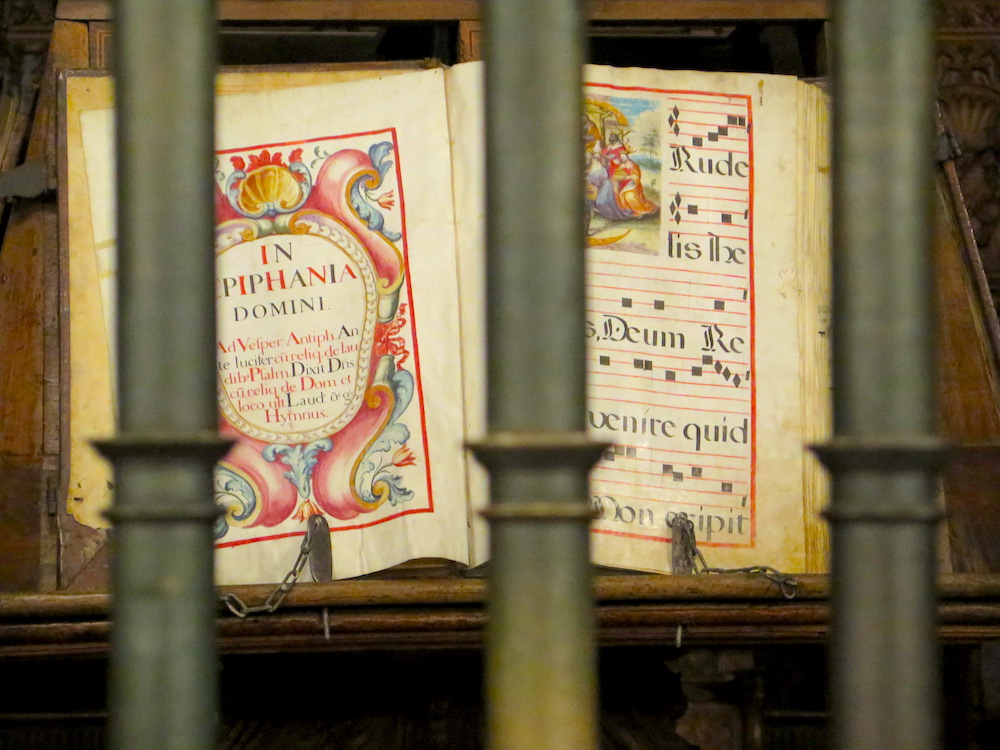 IN
EPIPHANIA
DOMINI.
Ad Vesper. Antiph. An
te lucifer cū reliq. de lau
dib9 Psalm. Dixit Dn̄s
cū reliq. de Dom. et
loco ult. Laud. ō. g.
Hymnus.
Rude
lis he
s, Deum Re
venire quid
Non eripit